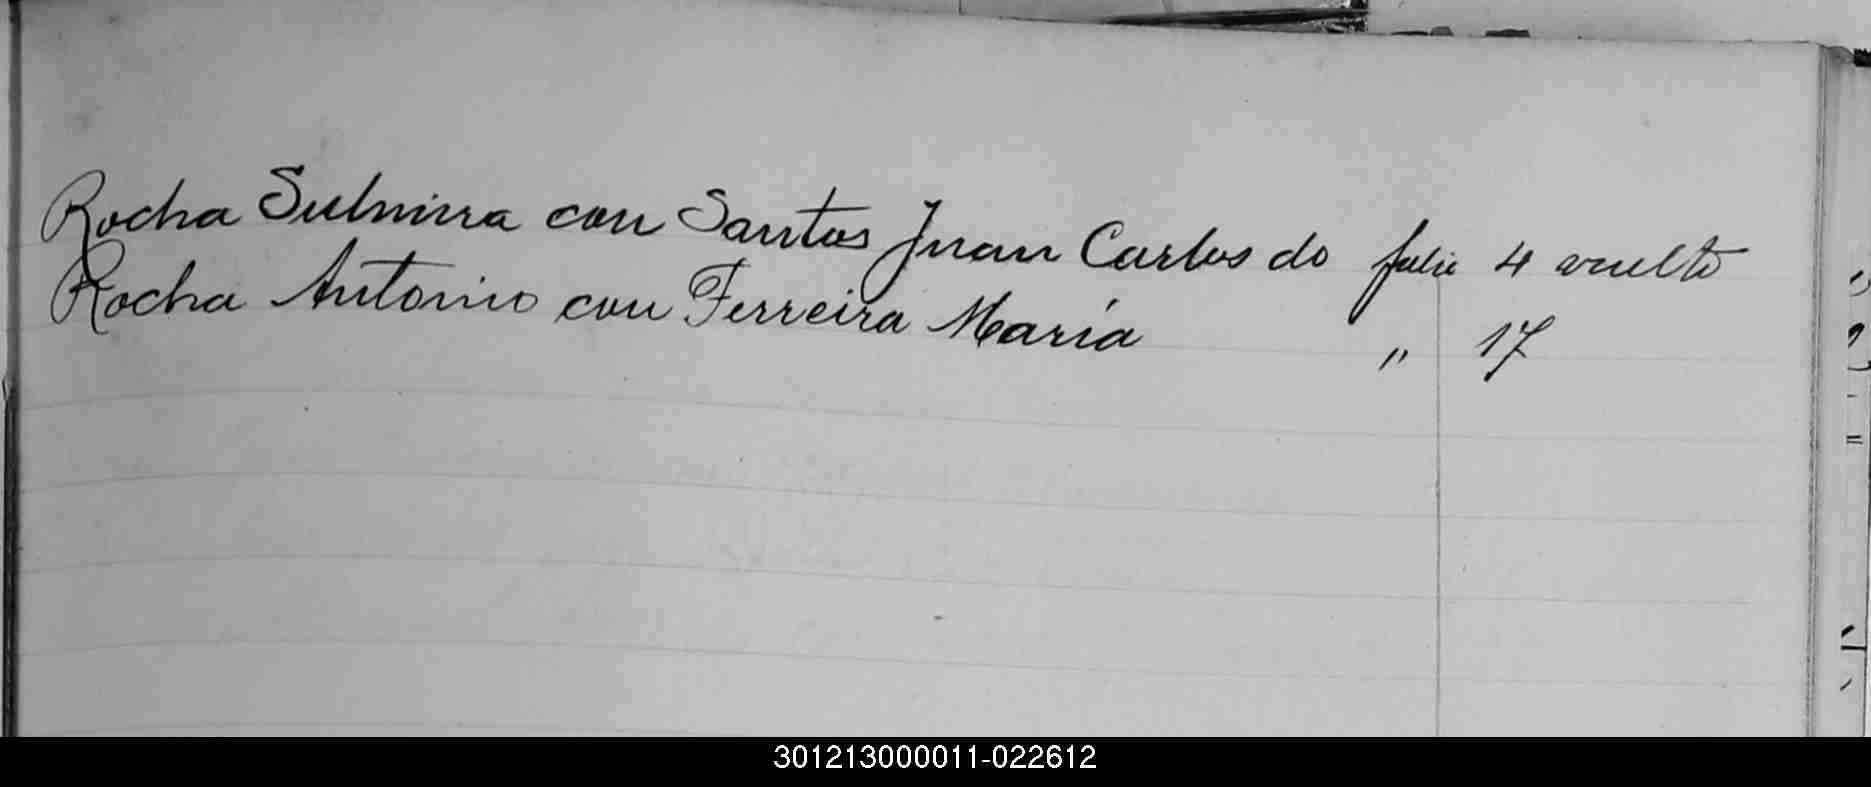 Rocha Sulmira con Santos Juan Carlos do folio 4 vuelto
Rocha Antonio con Ferreira María " 17
301213000011-022612